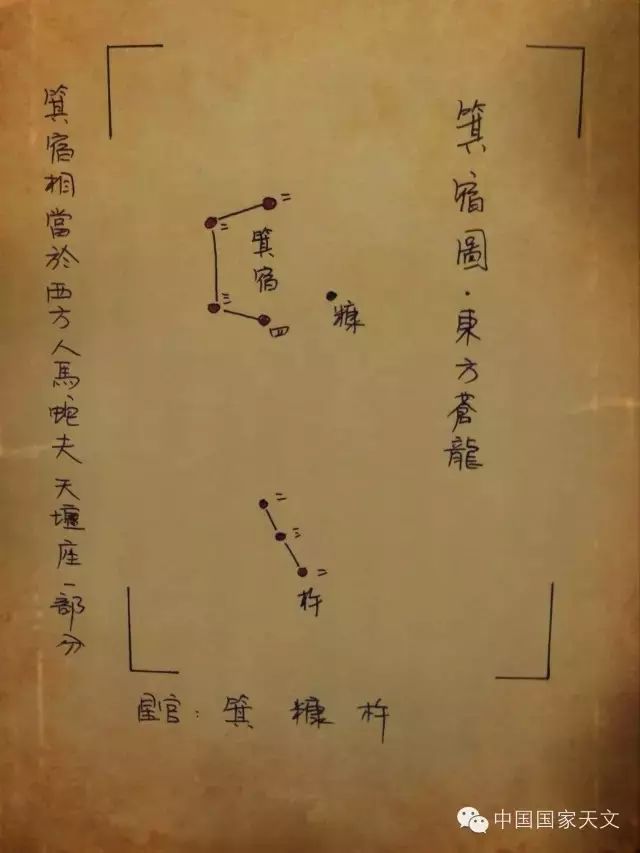 箕宿圖·東方蒼龍
二
二
箕宿
三
四
糠
二
三
二
杵
箕宿相當於西方人馬蛇夫天壇座一部分
星官：箕 糠 杵
中国国家天文